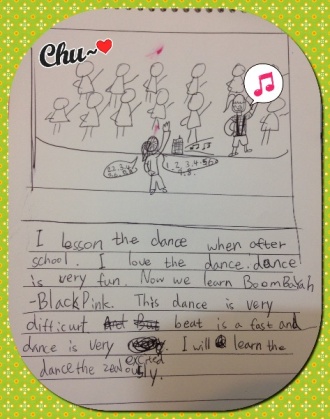 Chu~
2,2,3,4
5,6,7,8
1,2,3,4,5,6
7,8
I lesson the dance when after
school. I love the dance. dance
is very fun. Now we learn BoomBayah
-BlackPink. This dance is very
difficurt. And But beat is a fast and
dance is very excited. I will learn the
dance the zealously.